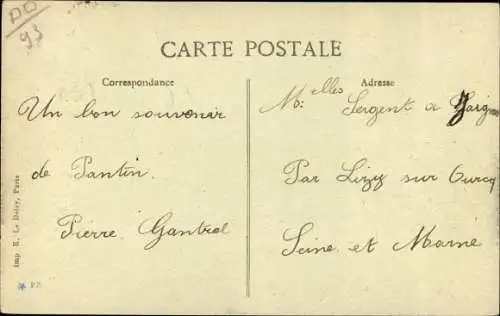 DD
93
CARTE POSTALE
Correspondance
Un bon souvenir
de Pantin.
Pierre Gantrel
Adresse
M:elles Sergent a
Par Lizy sur Ourcq
Seine et Marne
Imp E. Le Deley, Paris